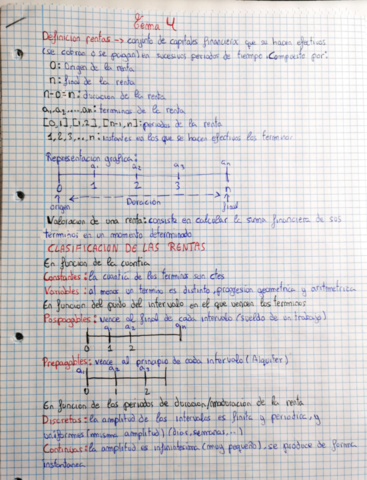 Tema 4
Definición rentas → conjunto de capitales financieros que se hacen efectivos
(se cobran o se pagan) en sucesivos periodos de tiempo. Compuesto por:
0: Origen de la renta
n: final de la renta
n-0=n: duración de la renta
a₁, a₂, ..., an: terminos de la renta
[0,1], [1,2], [n-1,n]: periodos de la renta
1, 2, 3, ..., n: instantes en los que se hacen efectivos los terminos
Representación gráfica:
a₁ a₂ a₃ an
0 1 2 3 n
origen Duración final
Valoración de una renta: consiste en calcular la suma financiera de sus
terminos en un momento determinado
CLASIFICACION DE LAS RENTAS
En función de la cuantía
Constantes: la cuantía de los terminos son ctes
Variables: al menos un termino es distinto, progresión geometrica y aritmetrica
En función del punto del intervalo en el que vengan los terminos
Pospagables: vence al final de cada intervalo (sueldo de un trabajo)
a₁ a₂ an
0 1 2
Prepagables: vence al principio de cada intervalo (Alquiler)
a₁ a₂
0 1 2
En función de los periodos de duración/maduración de la renta
Discretas: la amplitud de los intervalos es finita y periodica, y
uniformes (misma amplitud) (dias, semanas, ...)
Continuas: la amplitud es infinitesima (muy pequeño), se produce de forma
instantanea